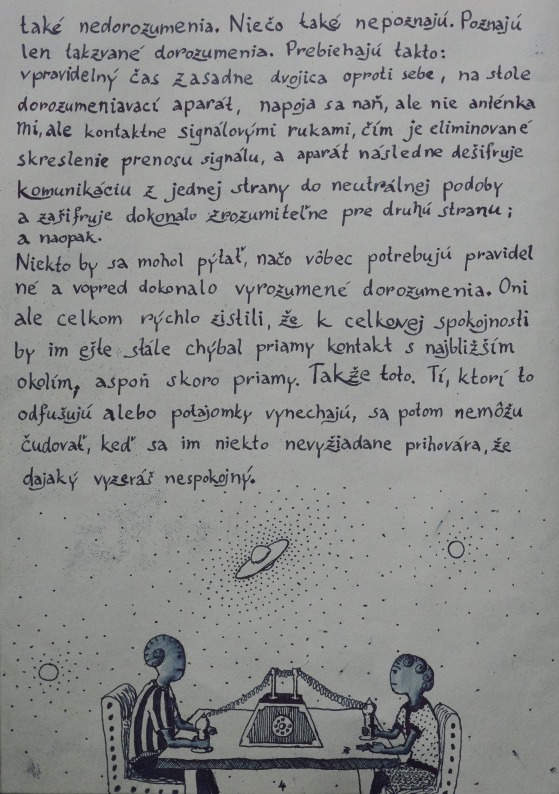 také nedorozumenia. Niečo také nepoznajú. Poznajú
len takzvané dorozumenia. Prebiehajú takto:
v pravidelný čas zasadne dvojica oproti sebe, na stole
dorozumeniavací aparát, napoja sa naň, ale nie anténka
mi, ale kontaktne signálovými rukami, čím je eliminované
skreslenie prenosu signálu, a aparát následne dešifruje
komunikáciu z jednej strany do neutrálnej podoby
a zašifruje dokonalo zrozumiteľne pre druhú stranu;
a naopak.
Niekto by sa mohol pýtať, načo vôbec potrebujú pravidel
né a vopred dokonalo vyrozumené dorozumenia. Oni
ale celkom rýchlo zistili, že k celkovej spokojnosti
by im ešte stále chýbal priamy kontakt s najbližším
okolím, aspoň skoro priamy. Takže toto. Tí, ktorí to
odfušujú alebo potajomky vynechajú, sa potom nemôžu
čudovať, keď sa im niekto nevyžiadane prihovára, že
dajaký vyzeráš nespokojný.
4